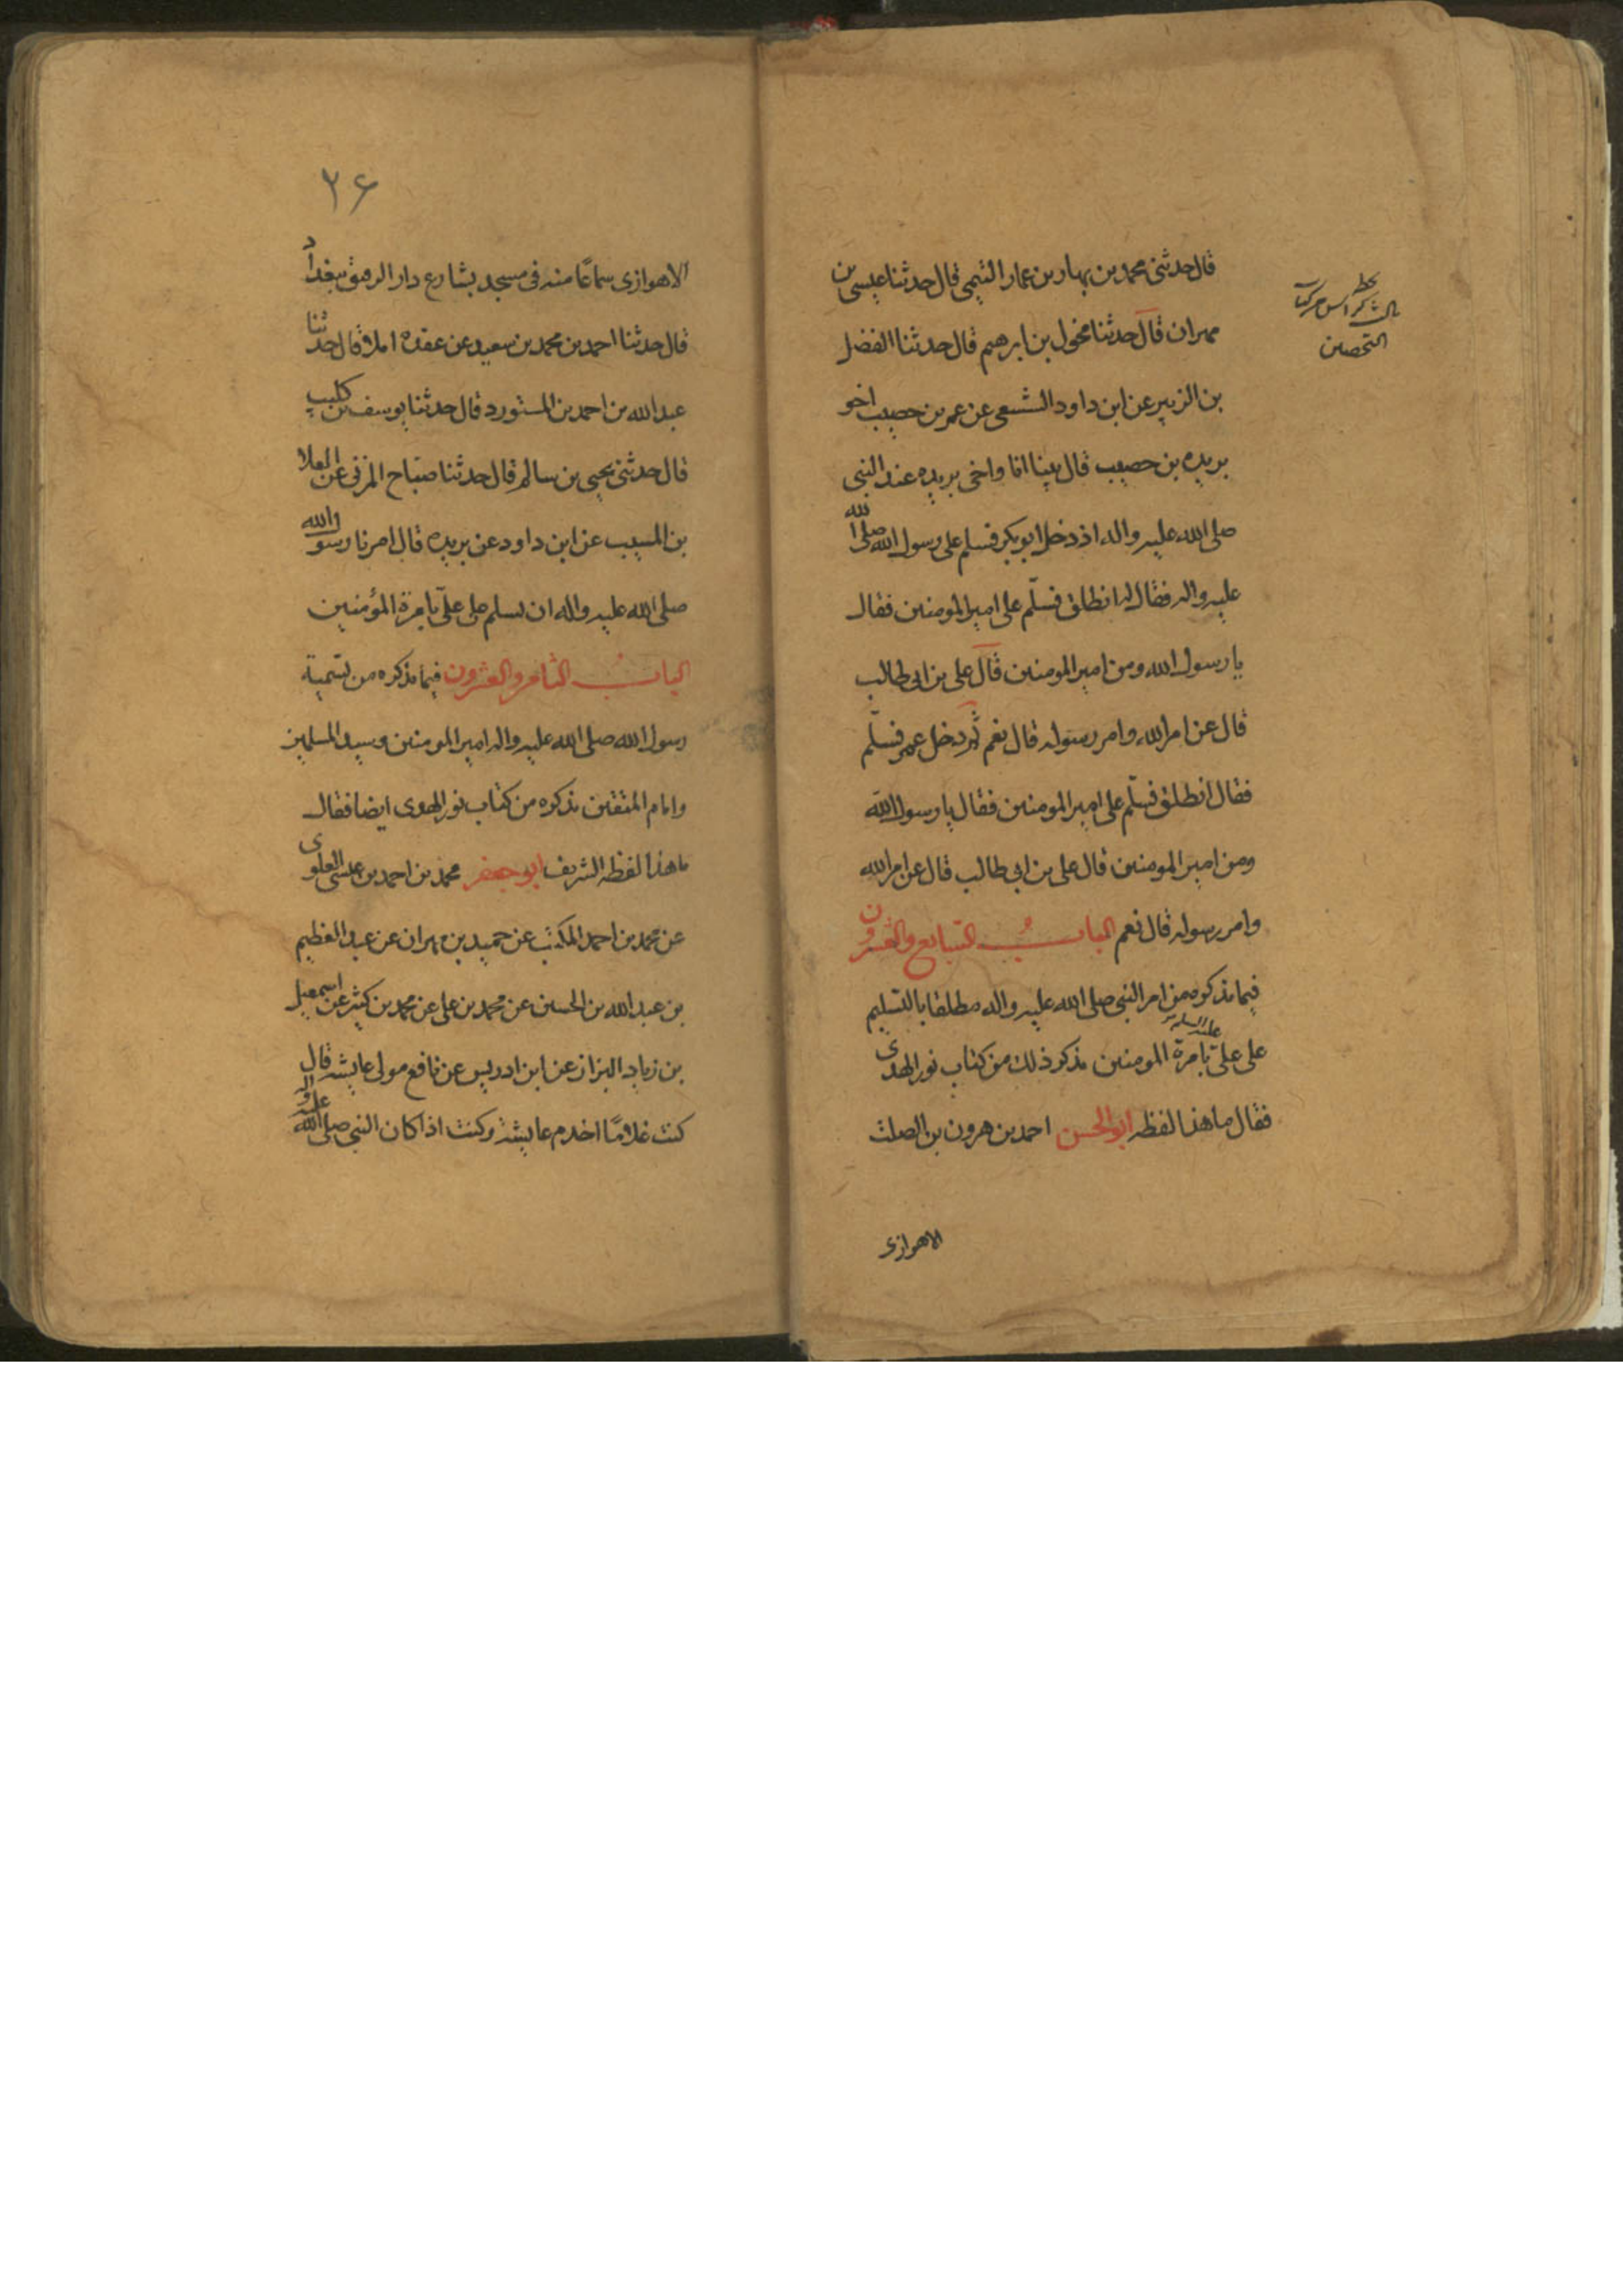 قال حدثنى محمد بن بهار بن عمار التيمى قال حدثنا عيسى بن
مهران قال حدثنا مخول بن ابرهيم قال حدثنا الفضل
بن الزبير عن ابن داود السبيعى عن عمر بن حصيب اخو
بريده بن حصيب قال بينا انا واخى بريده عند النبى
صلى الله عليه واله اذ دخل ابو بكر فسلم على رسول الله صلى الله
عليه واله فقال له انطلق فسلّم على امير المومنين فقال
يا رسول الله ومن امير المومنين قال على بن ابى طالب
قال عن امر الله وامر رسوله قال نعم ثم دخل عمر فسلّم
فقال انطلق فسلّم على امير المومنين فقال يا رسول الله
ومن امير المومنين قال على بن ابى طالب قال عن امر الله
وامر رسوله قال نعم البابُ السابع والعشرون
فيما نذكره من امر النبى صلى الله عليه واله مطلقا بالتسليم
على علىّ عليه السلم بامرة المومنين نذكر ذلك من كتاب نور الهدى
فقال ما هذا لفظه ابو الحسن احمد بن هرون بن الصلت
الاهوازى
التحصين
٢٦
الاهوازى سماعًا منه فى مسجد بشارع دار الرقيق ببغداد
قال حدثنا احمد بن محمد بن سعيد عن عقده املا قال حدثنا
عبد الله بن احمد بن المستورد قال حدثنا يوسف بن كليب
قال حدثنى يحيى بن سالم قال حدثنا صباح المزنى عن العلا
بن المسيب عن ابن داود عن بريده قال امرنا رسول الله
صلى الله عليه واله ان نسلم على علىّ بامرة المؤمنين
البابُ الثامن والعشرون فيما نذكره من تسمية
رسول الله صلى الله عليه واله امير المومنين وسيد المسلمين
وامام المتقين نذكره من كتاب نور الهدى ايضا فقال
ما هذا لفظه الشريف ابو جعفر محمد بن احمد بن عيسى العلوى
عن محمد بن احمد المكتب عن حميد بن مهران عن عبد العظيم
بن عبد الله بن الحسين عن محمد بن على عن محمد بن كثير عن اسمعيل
بن زياد البزاز عن ابن ادريس عن نافع مولى عايشه قال
كنت غلامًا اخدم عايشة وكنت اذا كان النبى صلى الله عليه واله